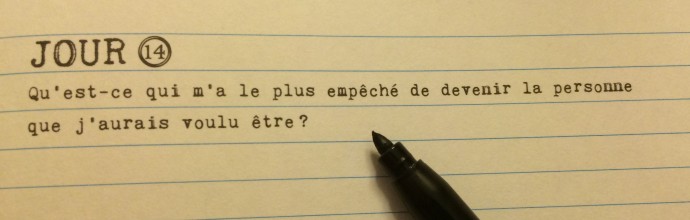 JOUR 14
Qu'est-ce qui m'a le plus empêché de devenir la personne
que j'aurais voulu être?